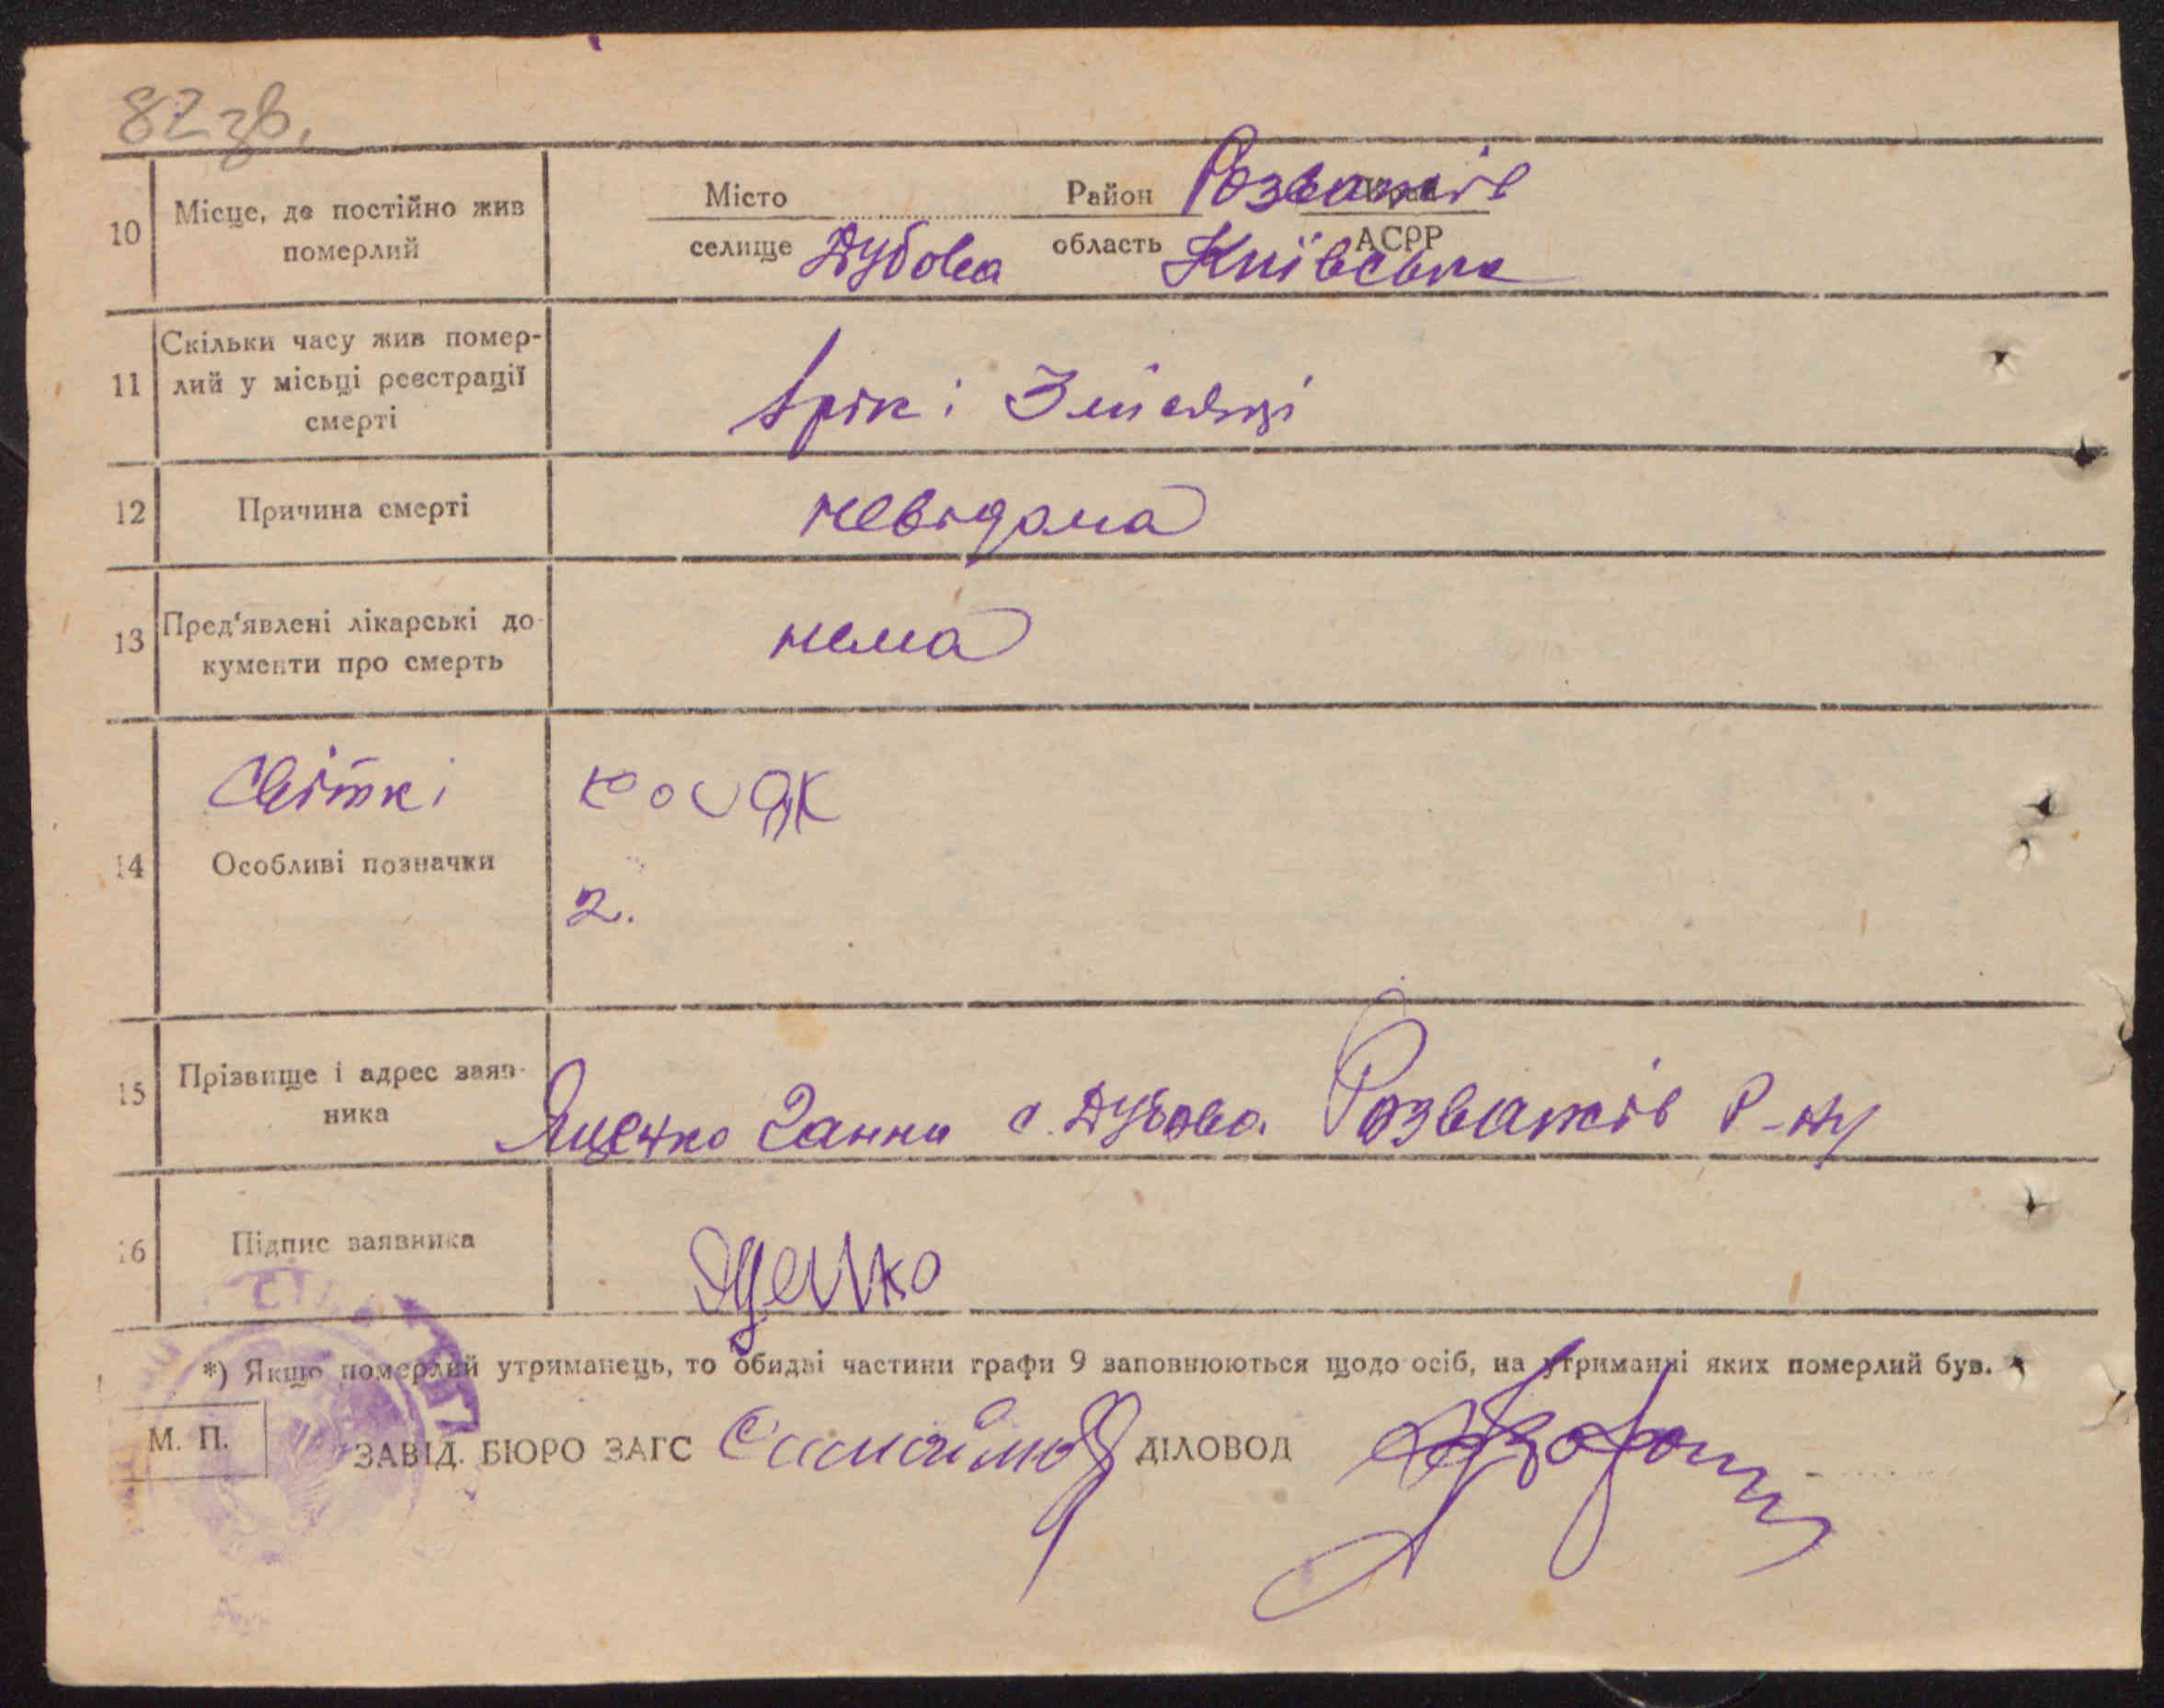 82 зв.
10 Місце, де постійно жив померлий
Місто Район Розважів Край
селище Дубова область Київська АСРР
11 Скільки часу жив помер-
лий у місьці реєстрації
смерті
1 рік і 3 місяці
12 Причина смерті невідома
13 Пред'явлені лікарські до-
кументи про смерть
нема
Свідкі
14 Особливі позначки
2.
15 Прізвище і адрес заяв-
ника
Яценко Ганна с. Дубова Розважів р-ну
16 Підпис заявника Яценко
*) Якщо померлий утриманець, то обидві частини графи 9 заповнюються щодо осіб, на утриманні яких померлий був.
М. П. ЗАВІД. БЮРО ЗАГС ДІЛОВОД